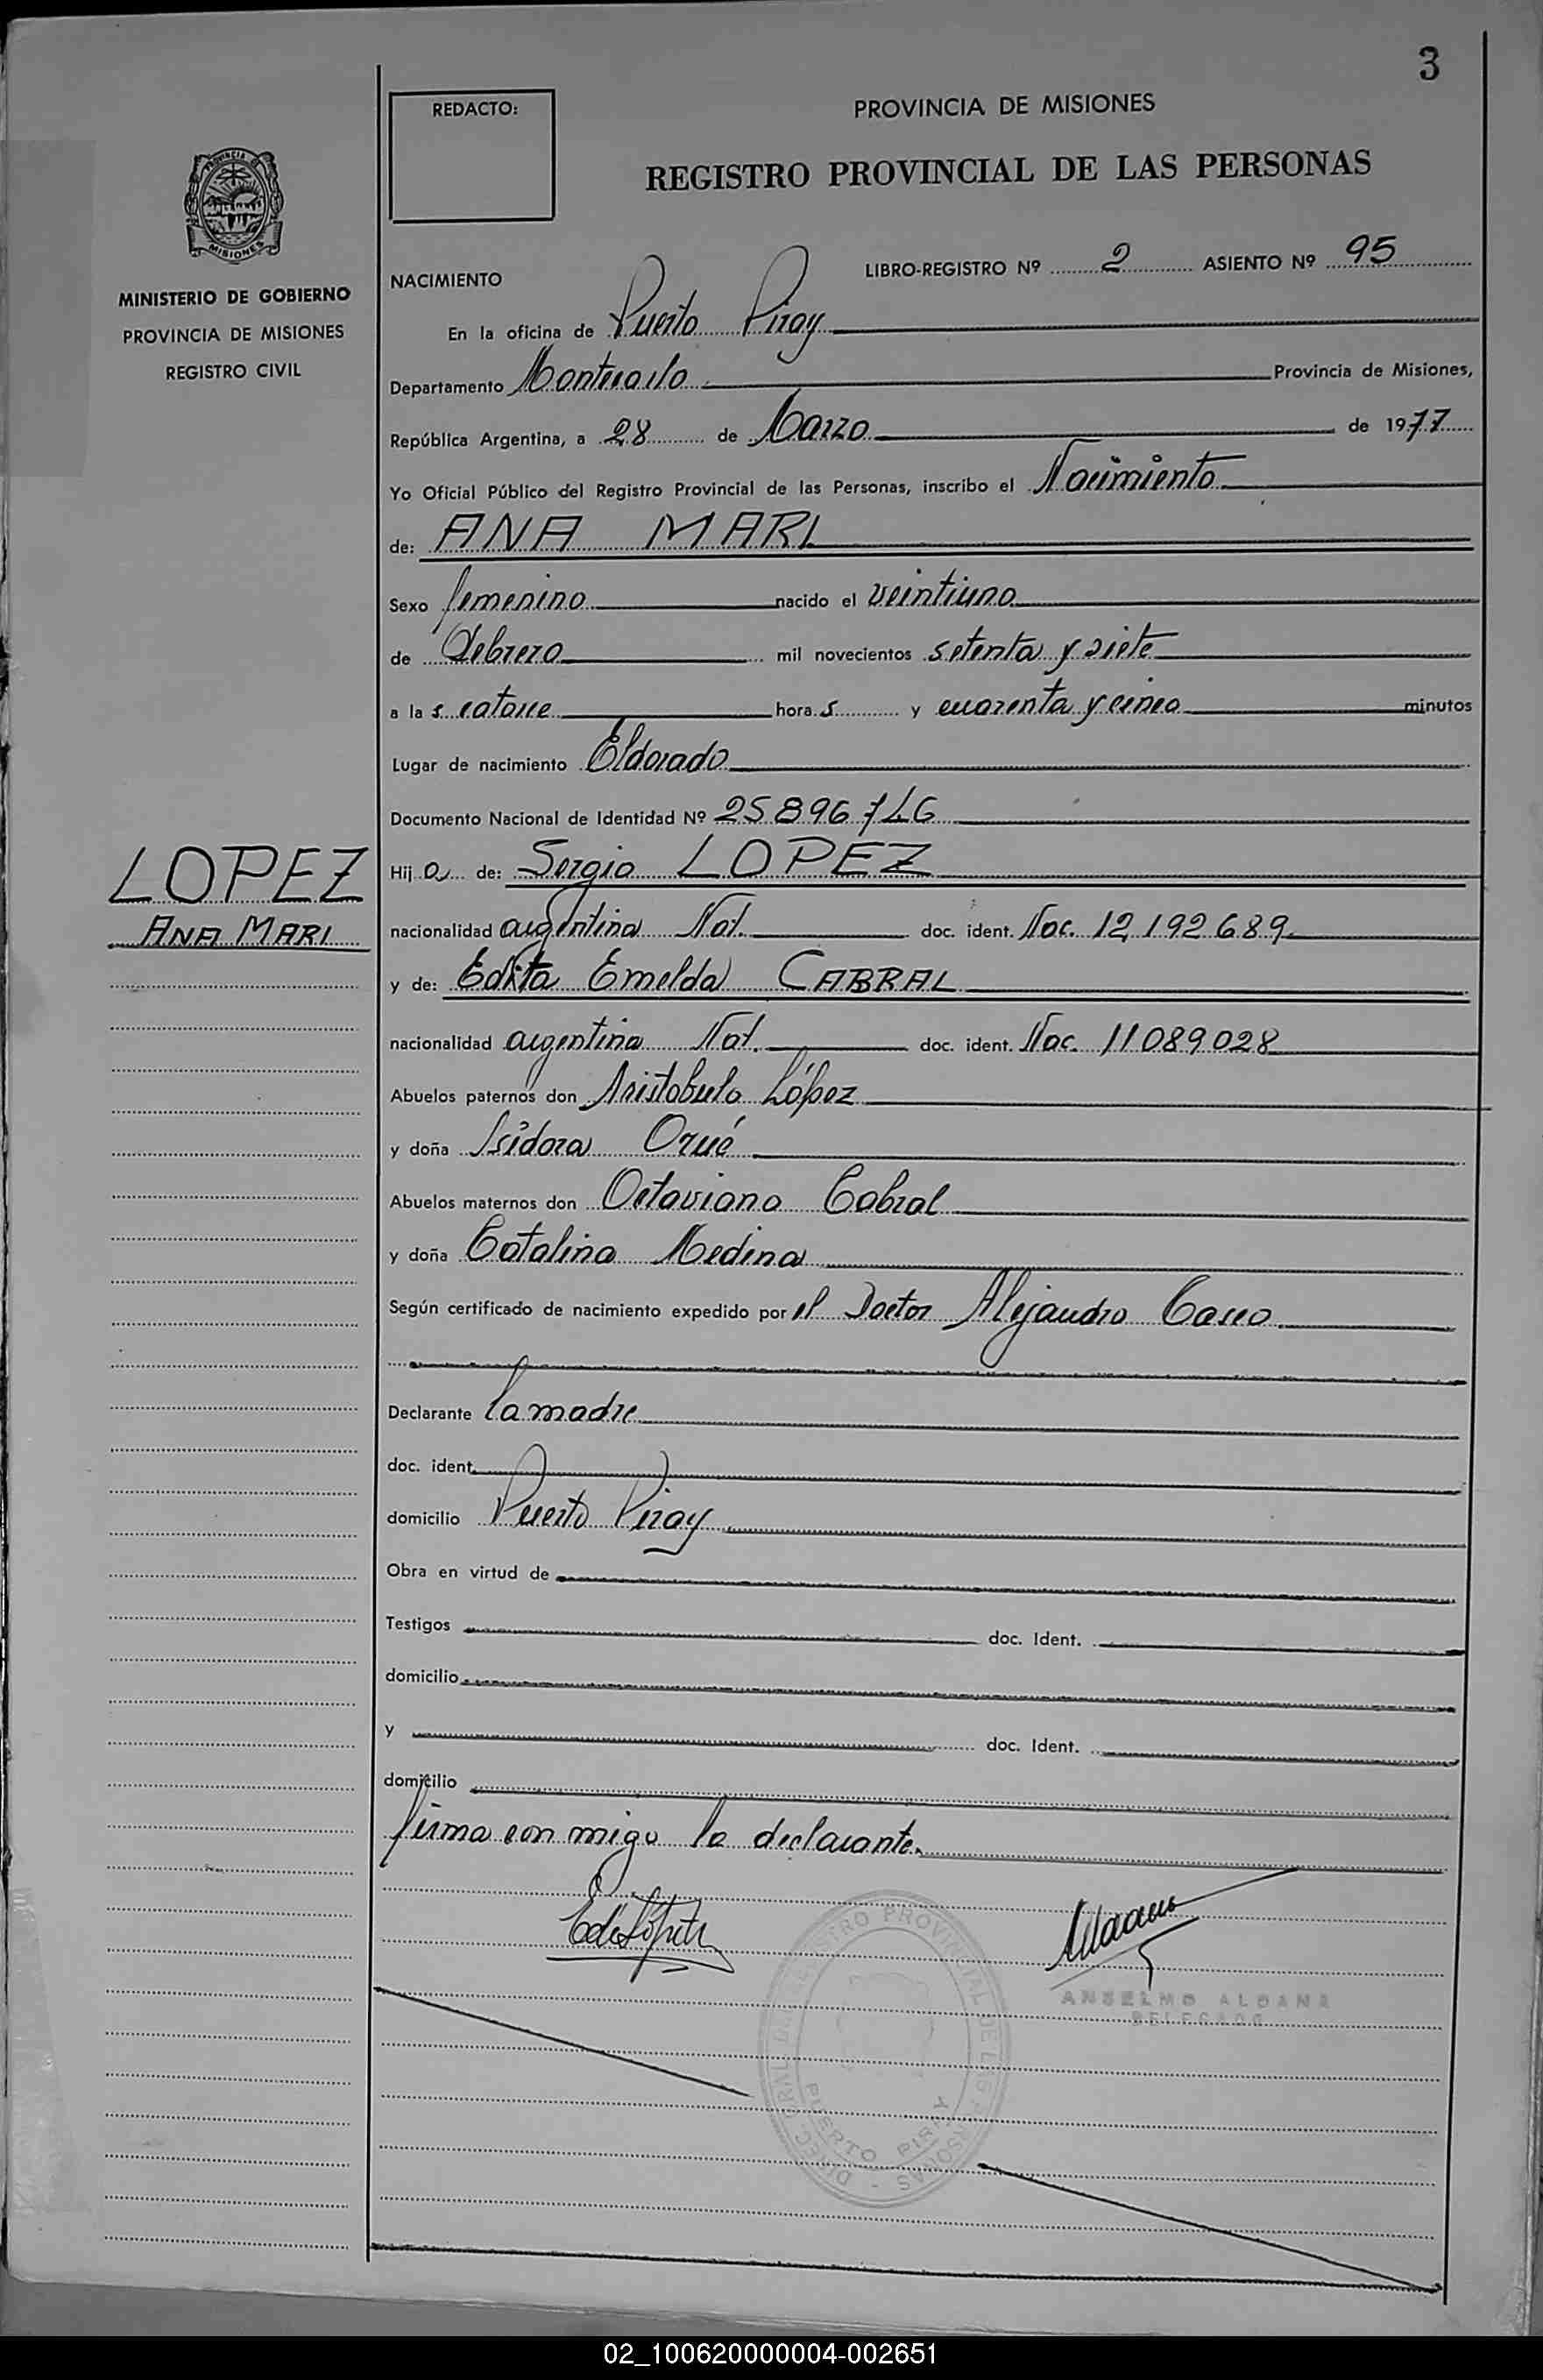 3
REDACTO:
PROVINCIA DE MISIONES
REGISTRO PROVINCIAL DE LAS PERSONAS
PROVINCIA DE
MISIONES
MINISTERIO DE GOBIERNO
PROVINCIA DE MISIONES
REGISTRO CIVIL
NACIMIENTO
LIBRO-REGISTRO Nº 2 ASIENTO Nº 95
En la oficina de Puerto Piray
Departamento Montecarlo Provincia de Misiones,
República Argentina, a 28 de Marzo de 1977
Yo Oficial Público del Registro Provincial de las Personas, inscribo el Nacimiento
de: ANA MARI
Sexo femenino nacido el veintiuno
de Febrero mil novecientos setenta y siete
a las catorce horas y cuarenta y cinco minutos
Lugar de nacimiento Eldorado
Documento Nacional de Identidad Nº 25896746
LOPEZ
ANA MARI
Hija de: Sergio LOPEZ
nacionalidad argentina Nat. doc. ident. Nac. 12192689
y de: Edita Emelda CABRAL
nacionalidad argentina Nat. doc. ident. Nac. 11089028
Abuelos paternos don Aristobulo López
y doña Isidora Orué
Abuelos maternos don Octaviano Cabral
y doña Catalina Medina
Según certificado de nacimiento expedido por el Doctor Alejandro
Declarante la madre
doc. ident.
domicilio Puerto Piray
Obra en virtud de
Testigos doc. Ident.
domicilio
y doc. Ident.
domicilio
firma con migo la declarante.
ANSELMO ALDANA
DELEGADO
DIREC. GRAL. DEL REGISTRO PROVINCIAL DE LAS PERSONAS -
PUERTO PIRAY
02_100620000004-002651